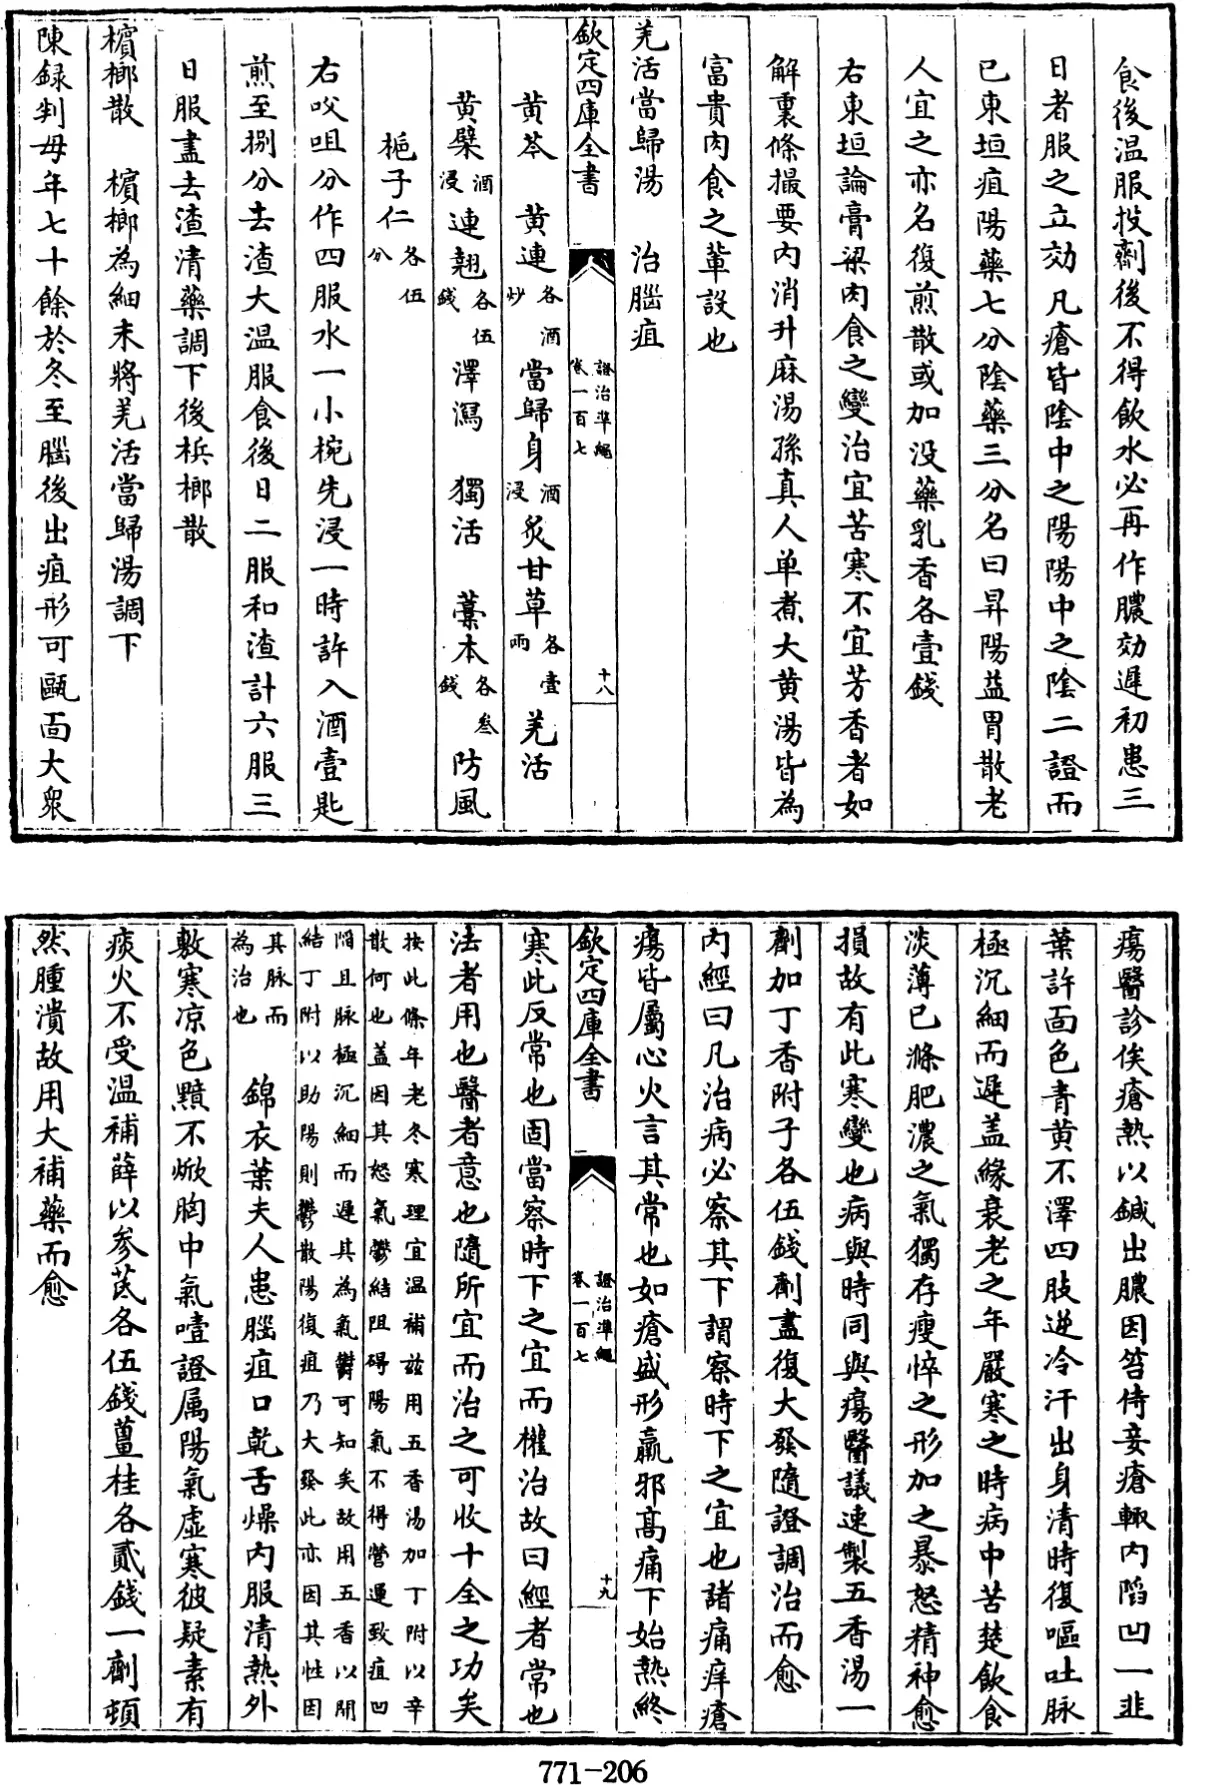 食後温服投劑後不得飲水必再作膿効遲初患三
日者服之立効凡瘡皆陰中之陽陽中之陰二證而
已東垣疽陽藥七分陰藥三分名曰昇陽益胃散老
人宜之亦名復煎散或加没藥乳香各壹錢
右東垣論膏粱肉食之變治宜苦寒不宜芳香者如
解裏條撮要内消升麻湯孫真人单煮大黄湯皆為
富貴肉食之輩設也
羌活當歸湯 治腦疽
欽定四庫全書 證治準繩 卷一百七 十八
黄芩 黄連各酒炒 當歸身酒浸 炙甘草各壹兩 羌活
黄檗酒浸 連翹各伍錢 澤瀉 獨活 藁本各叁錢 防風
梔子仁各伍分
右㕮咀分作四服水一小椀先浸一時許入酒壹匙
煎至捌分去渣大温服食後日二服和渣計六服三
日服盡去渣清藥調下後梹榔散
檳榔散 檳榔為細末將羌活當歸湯調下
陳録判母年七十餘於冬至腦後出疽形可甌面大衆
瘍醫診俟瘡熟以鍼出膿因笞侍妾瘡輙内䧟凹一韭
葉許面色青黄不澤四肢逆冷汗出身清時復嘔吐脉
極沉細而遲盖緣衰老之年嚴寒之時病中苦楚飲食
淡薄已滌肥濃之氣獨存瘦悴之形加之暴怒精神愈
損故有此寒變也病與時同與瘍醫議速製五香湯一
劑加丁香附子各伍錢劑盡復大發隨證調治而愈
内經曰凡治病必察其下謂察時下之宜也諸痛痒瘡
瘍皆屬心火言其常也如瘡盛形羸邪髙痛下始熱終
欽定四庫全書 證治準繩 卷一百七 十九
寒此反常也固當察時下之宜而權治故曰經者常也
法者用也醫者意也隨所宜而治之可收十全之功矣
按此條年老冬寒理宜温補兹用五香湯加丁附以辛
散何也盖因其怒氣鬱結阻碍陽氣不得營運致疽凹
䧟且脉極沉細而遲其為氣鬱可知矣故用五香以開
結丁附以助陽則鬱散陽復疽乃大發此亦因其性因
其脉而
為治也 錦衣葉夫人患腦疽口乾舌燥内服清熱外
敷寒凉色黯不焮胸中氣噎證属陽氣虚寒彼疑素有
痰火不受温補薛以參芪各伍錢薑桂各貳錢一劑頓
然腫潰故用大補藥而愈
771-206